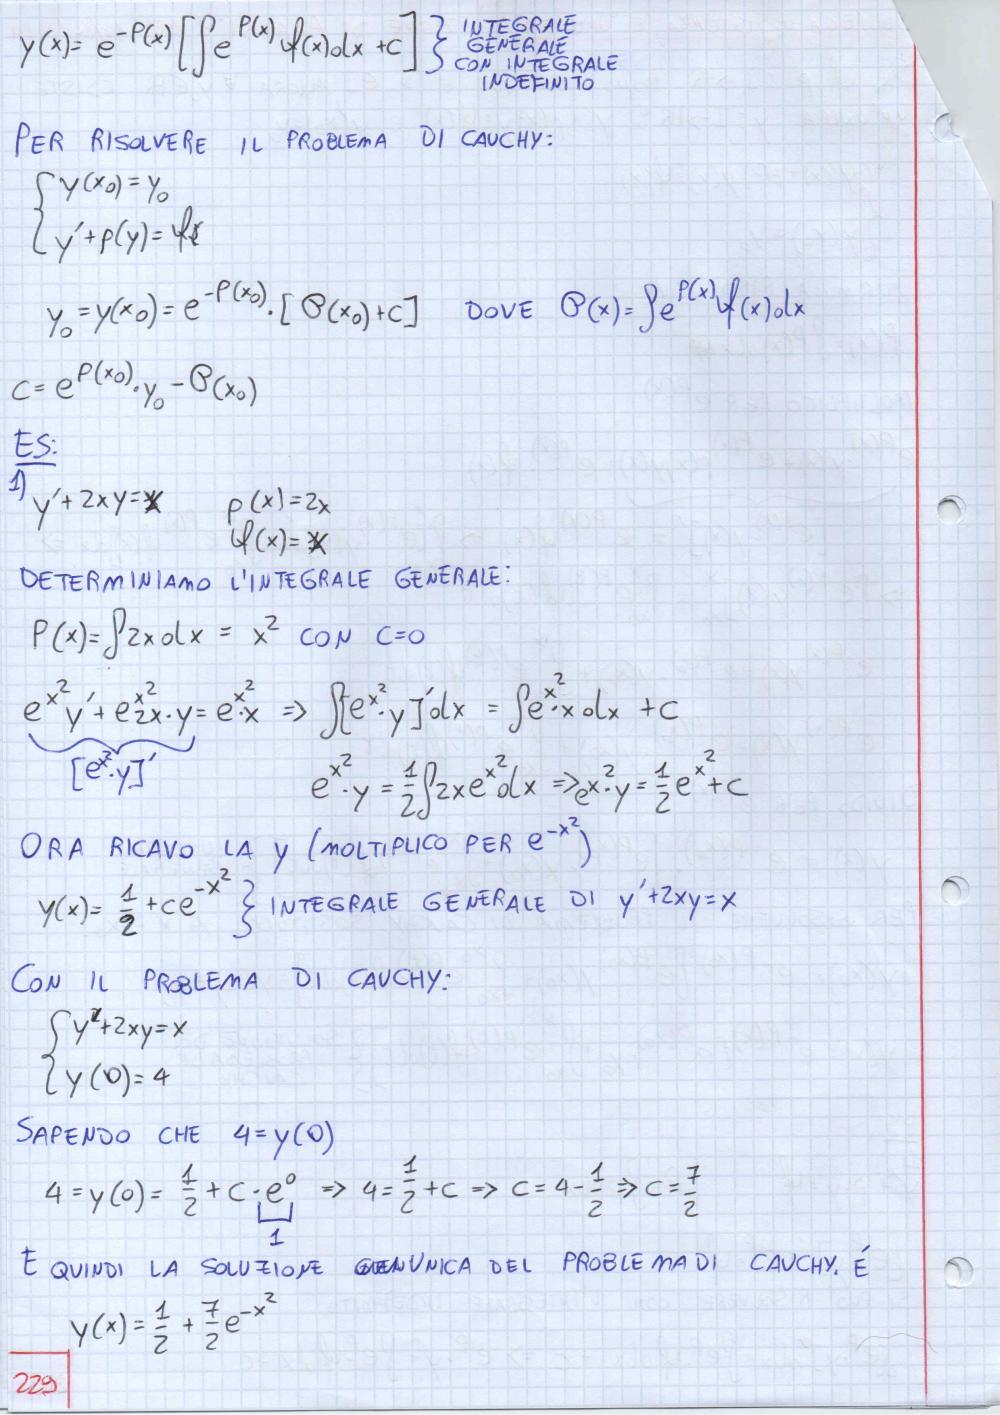 y(x)= e^{-P(x)} [∫e^{P(x)} φ(x)dx +c] } INTEGRALE
GENERALE
CON INTEGRALE
INDEFINITO
PER RISOLVERE IL PROBLEMA DI CAUCHY:
{ y(x₀)=y₀
y'+p(y)=φx
y₀=y(x₀)= e^{-P(x₀)}·[ Φ(x₀)+c] DOVE Φ(x)=∫e^{P(x)}φ(x)dx
c= e^{P(x₀)}·y₀-Φ(x₀)
ES:
1) y'+2xy=x p(x)=2x
φ(x)=x
DETERMINIAMO L'INTEGRALE GENERALE:
P(x)=∫2x dx = x² CON C=0
e^{x²}y'+e^{x²}2x·y=e^{x²}·x => ∫[e^{x²}·y]'dx = ∫e^{x²}·x dx +c
[e^{x²}·y]'
e^{x²}·y = 1/2∫2xe^{x²}dx => e^{x²}·y = 1/2 e^{x²}+c
ORA RICAVO LA y (MOLTIPLICO PER e^{-x²})
y(x)= 1/2 +ce^{-x²} } INTEGRALE GENERALE DI y'+2xy=x
CON IL PROBLEMA DI CAUCHY:
{ y'+2xy=x
y(0)=4
SAPENDO CHE 4=y(0)
4=y(0)= 1/2 + c·e⁰ => 4=1/2+c => c=4-1/2 => c=7/2
1
E QUINDI LA SOLUZIONE UNICA DEL PROBLEMA DI CAUCHY. É
y(x)=1/2 + 7/2 e^{-x²}
229